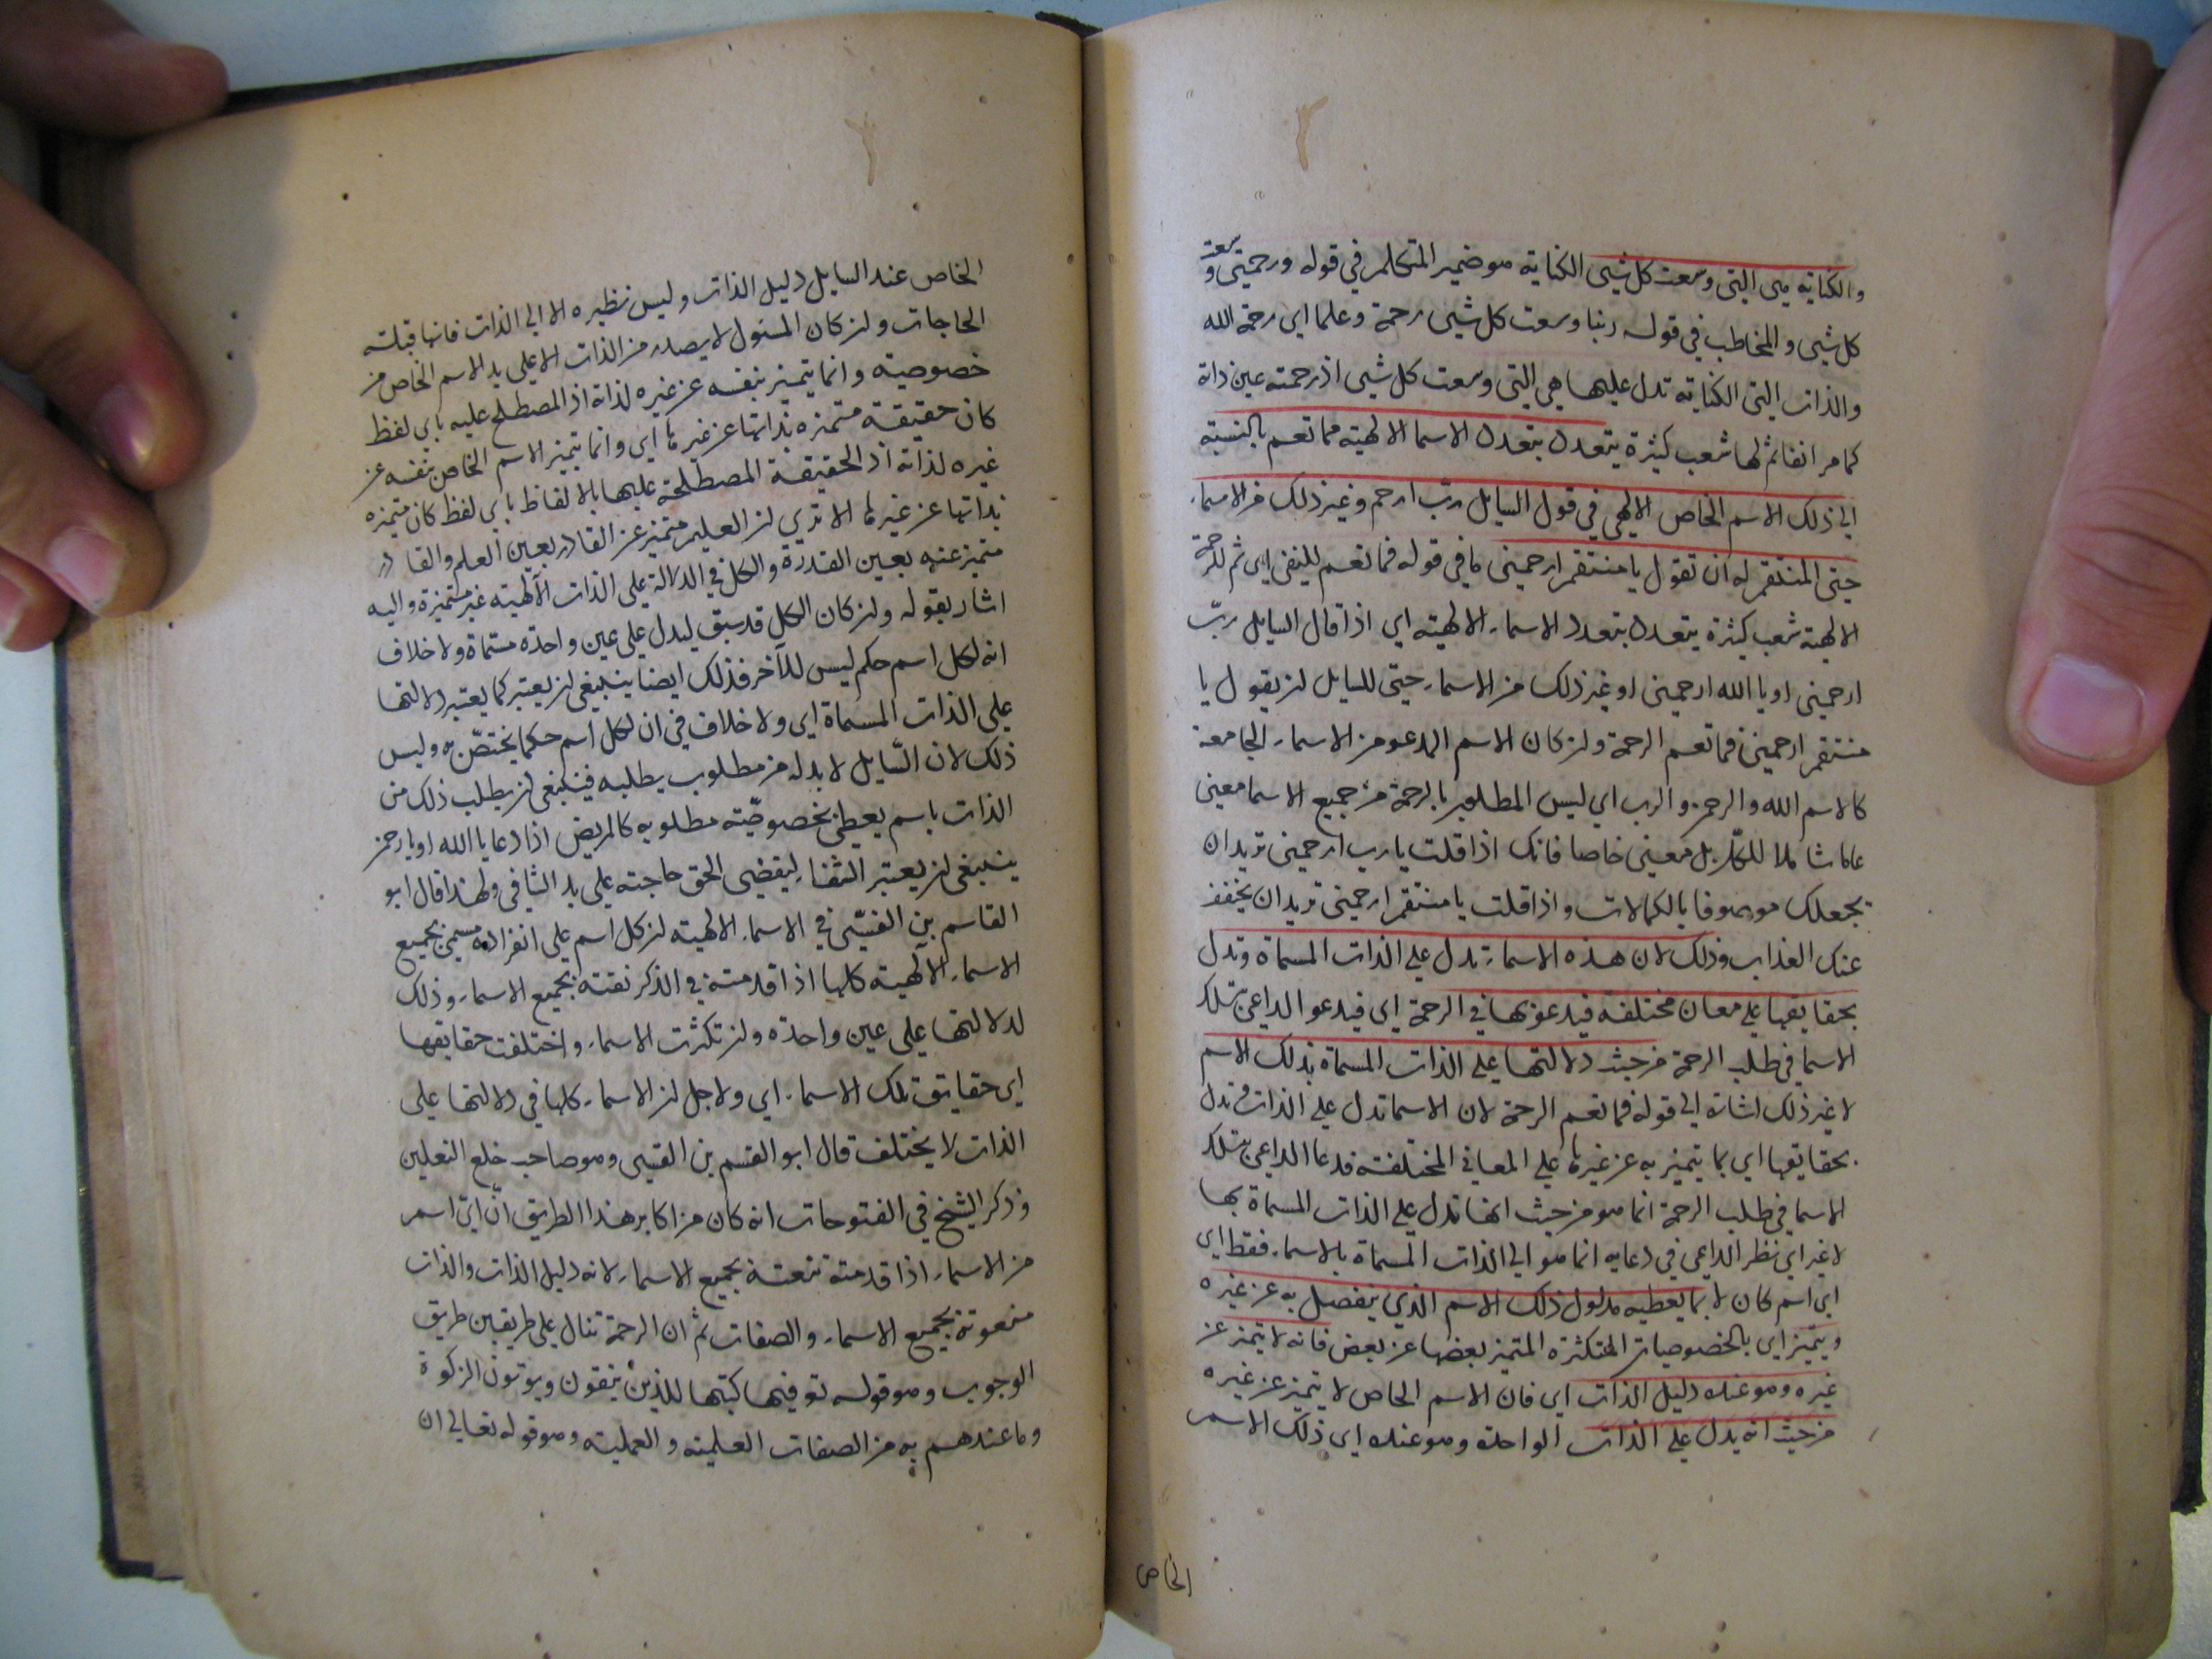 والكناية هى التى وسعت كل شيى الكناية هو ضمير المتكلم في قوله ورحمتي وسعت
كل شيى والمخاطب في قوله ربنا وسعت كل شيى رحمة وعلما اي رحمة الله
والذات التى الكناية تدل عليها هي التى وسعت كل شيى اذ رحمته عين ذاته
كما مر انفا ثم لها شعب كثيرة يتعدد بتعدد الاسما الالهية فما تعم بالنسبة
الى ذلك الاسم الخاص الالهي في قول السايل رب ارحم وغير ذلك من الاسماء
حتى المنتقم له ان تقول يا منتقم ارحمني ما في قوله فما تعم للنفي اى ثم للرحمة
الالهية شعب كثيرة يتعدد بتعدد الاسماء الالهية اي اذا قال السايل ربّ
ارحمني او يا الله ارحمني او غير ذلك من الاسماء حتى للسايل ان يقول يا
منتقم ارحمني فما تعم الرحمة وان كان الاسم المدعو من الاسماء الجامعة
كالاسم الله والرحمن والرب اي ليس المطلوب بالرحمة من جميع الاسما معنى
عاما شاملا للكل بل معنى خاصا فانك اذا قلت يا رب ارحمني تريد ان
يجعلك موصوفا بالكمالات واذا قلت يا منتقم ارحمني تريد ان يخفف
عنك العذاب وذلك لان هذه الاسماء تدل على الذات المسماة وتدل
بحقايقها على معان مختلفة فيدعو بها في الرحمة اى فيدعو الداعي بتلك
الاسما في طلب الرحمة من حيث دلالتها على الذات المسماة بذلك الاسم
لا غير ذلك اشارة الى قوله فما تعم الرحمة لان الاسما تدل على الذات وتدل
بحقايقها اي بما يتميز به عن غيرها على المعاني المختلفة فدعا الداعي بتلك
الاسما في طلب الرحمة انما هو من حيث انها تدل على الذات المسماة بها
لا غير اي نظر الداعي في دعايه انما هو الى الذات المسماة بالاسماء فقط اى
اى اسم كان لا بما يعطيه مدلول ذلك الاسم الذي ينفصل به عن غيره
ويتميز اى بالخصوصيات المتكثرة المتميز بعضها عن بعض فانه لا يتميز عن
غيره وهو عنده دليل الذات اى فان الاسم الخاص لا يتميز عن غيره
من حيث انه يدل على الذات الواحدة وهو عنده اى ذلك الاسم
الخاص
الخاص عند السايل دليل الذات وليس نظيره الا الى الذات فانها قبلة
الحاجات وان كان المسئول لا يصدر من الذات الا على يد الاسم الخاص من
خصوصية وانما يتميز بنفسه عن غيره لذاته اذ المصطلح عليه باى لفظ
كان حقيقة متميزه بذاتها عن غيرها اي وانما يتميز الاسم الخاص بنفسه عن
غيره لذاته اذ الحقيقة المصطلحة عليها بالالفاظ باى لفظ كان متميزه
بذاتها عن غيرها الا ترى ان العليم متميز عن القادر بعين العلم والقادر
متميز عنه بعين القدرة والكل في الدلالة على الذات الالهية غير متميزة واليه
اشار بقوله وان كان الكل قد سيق ليدل على عين واحدة مسماة ولا خلاف
انه لكل اسم حكم ليس للآخر فذلك ايضا ينبغى ان يعتبر كما يعتبر دلالتها
على الذات المسماة اى ولا خلاف في ان لكل اسم حكما يختصّ به وليس
ذلك لان السّايل لا بد له من مطلوب يطلبه فينبغى ان يطلب ذلك من
الذات باسم يعطي بخصوصيّته مطلوبه كالمريض اذا دعا يا الله او يا رحمن
ينبغى ان يعتبر الشفاء ليقضى الحق حاجته على يد الشافى ولهذا قال ابو
القاسم بن القسّى في الاسماء الالهية ان كل اسم على انفراده مسمى بجميع
الاسماء الآلهية كلها اذا قدمته في الذكر نعته بجميع الاسماء وذلك
لدلالتها على عين واحدة وان تكثرت الاسماء واختلفت حقايقها
اى حقايق تلك الاسماء اى ولاجل ان الاسماء كلها في دلالتها على
الذات لا يختلف قال ابو القسم بن القسى وهو صاحب خلع النعلين
وذكر الشيخ في الفتوحات انه كان من اكابر هذا الطريق انّ اىّ اسم
من الاسماء اذا قدمته تنعته بجميع الاسماء لانه دليل الذات والذات
منعوتة بجميع الاسماء والصفات ثم ان الرحمة تنال على طريقين طريق
الوجوب وهو قوله تع فسا كتبها للذين يتقون ويوتون الزكوة
وما عندهم به من الصفات العلمية والعملية وهو قوله تعالى ان